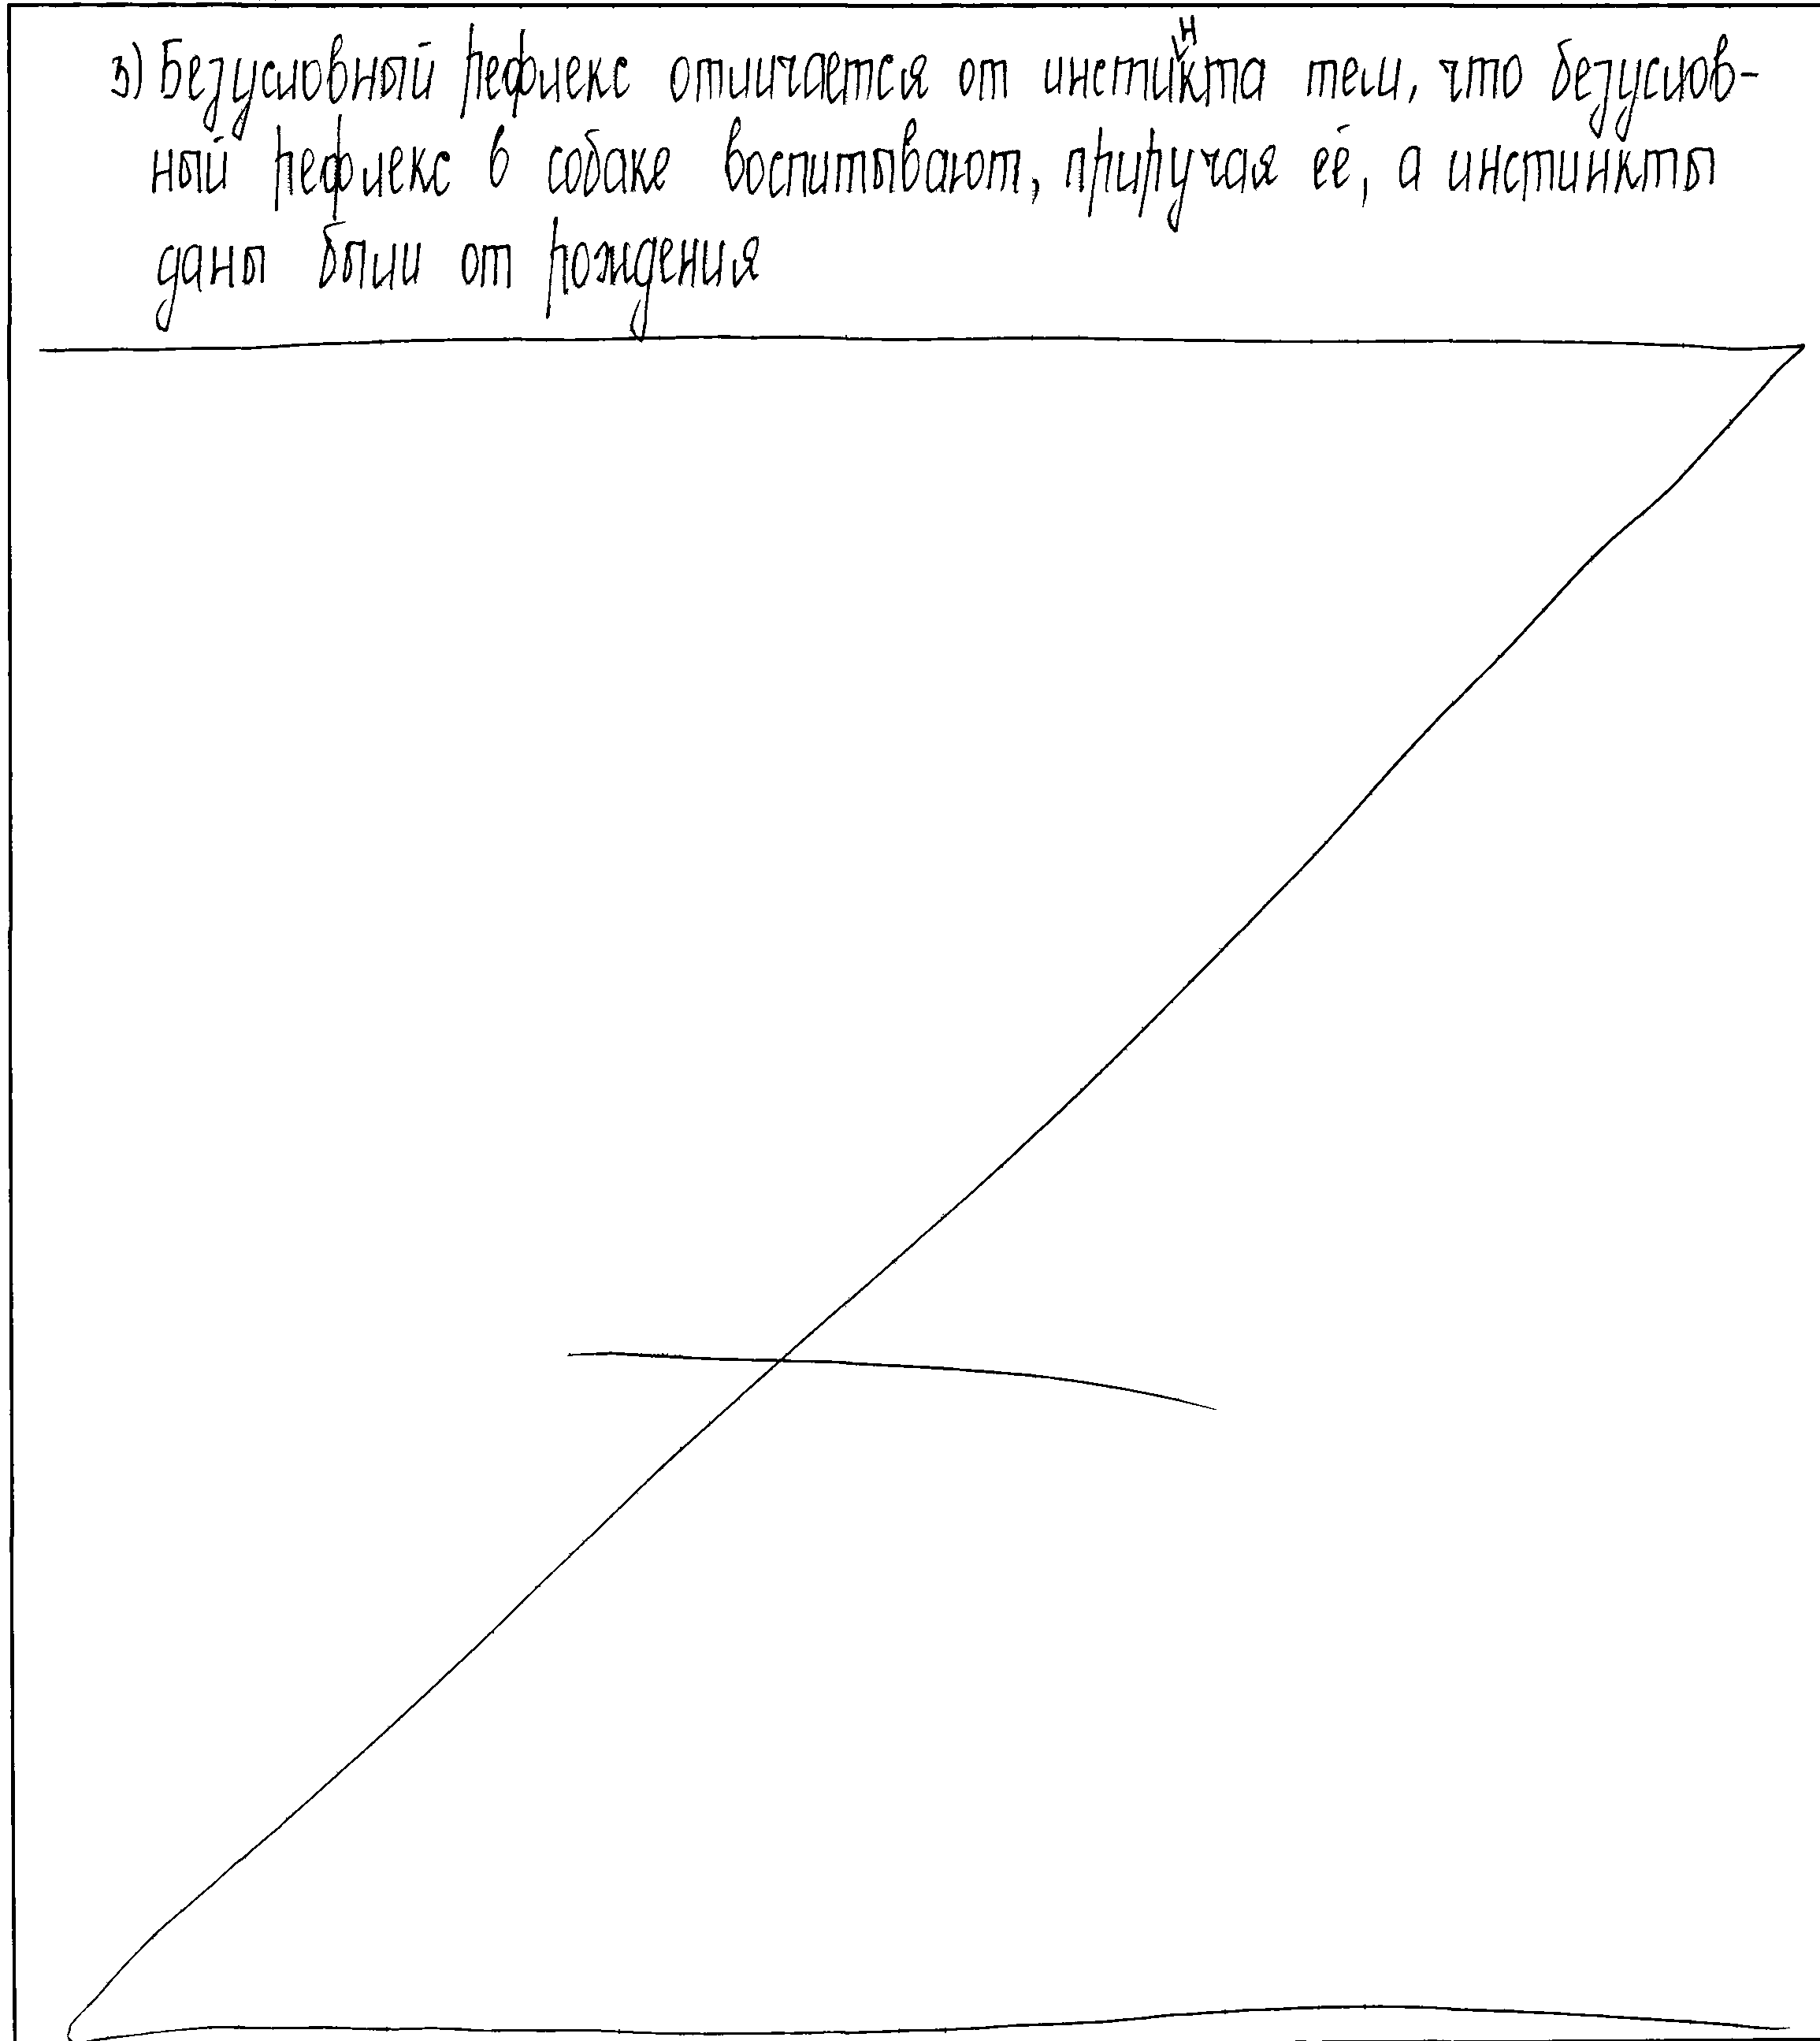 3) Безусловный рефлекс отличается от инстинкта тем, что безуслов-
ный рефлекс в собаке воспитывают, приручая её, а инстинкты
даны были от рождения